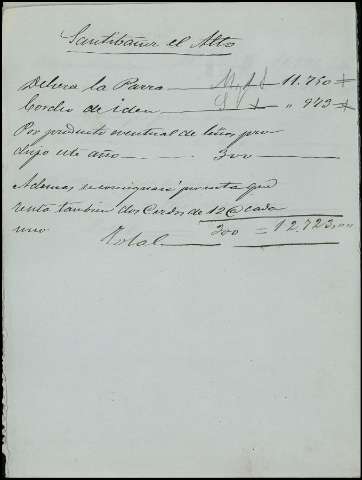 Santibañez el Alto
Dehesa la Parra 11.750
Cordio de idem " 973
Por producto eventual de leñas pro-
dujo este año 300
Ademas se consignará por nota que
renta tambien dos Cerdos de 12 @ cada
uno 300 = 12.723,00
Total